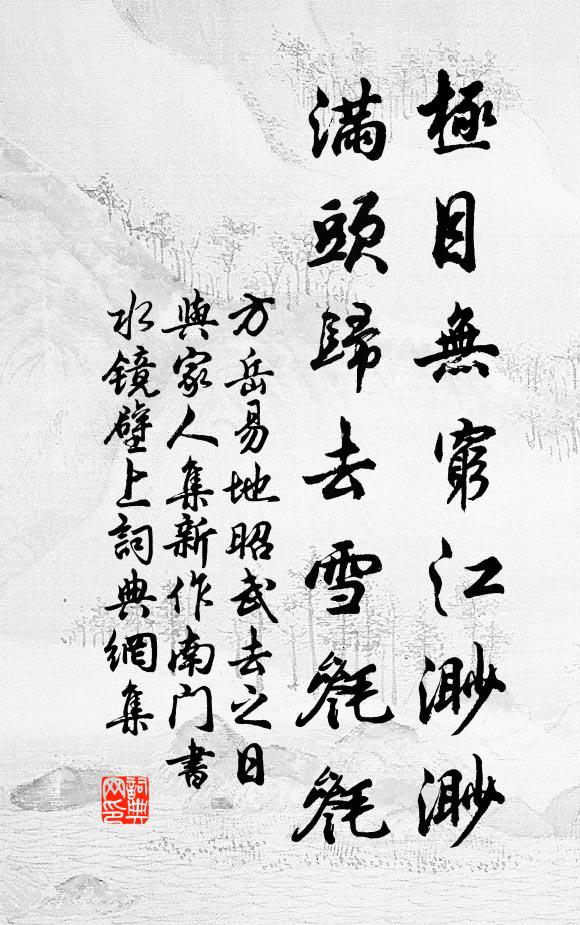 極目無窮江渺渺
滿頭歸去雪毿毿
方岳易地昭武去之日
與家人集新作南门書
水镜壁上詞典網集
詞典网印